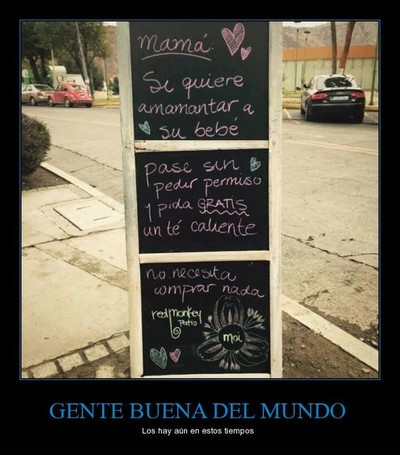 mamá:
Si quiere
amamantar a
su bebé
pase sin
pedir permiso
y pida GRATIS
un té caliente
no necesita
comprar nada
redmonkey
Patio
moi
GENTE BUENA DEL MUNDO
Los hay aún en estos tiempos